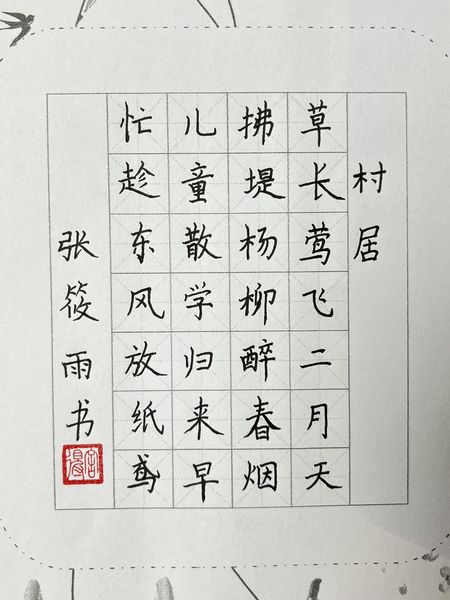 村居
草长莺飞二月天
拂堤杨柳醉春烟
儿童散学归来早
忙趁东风放纸鸢
张筱雨书